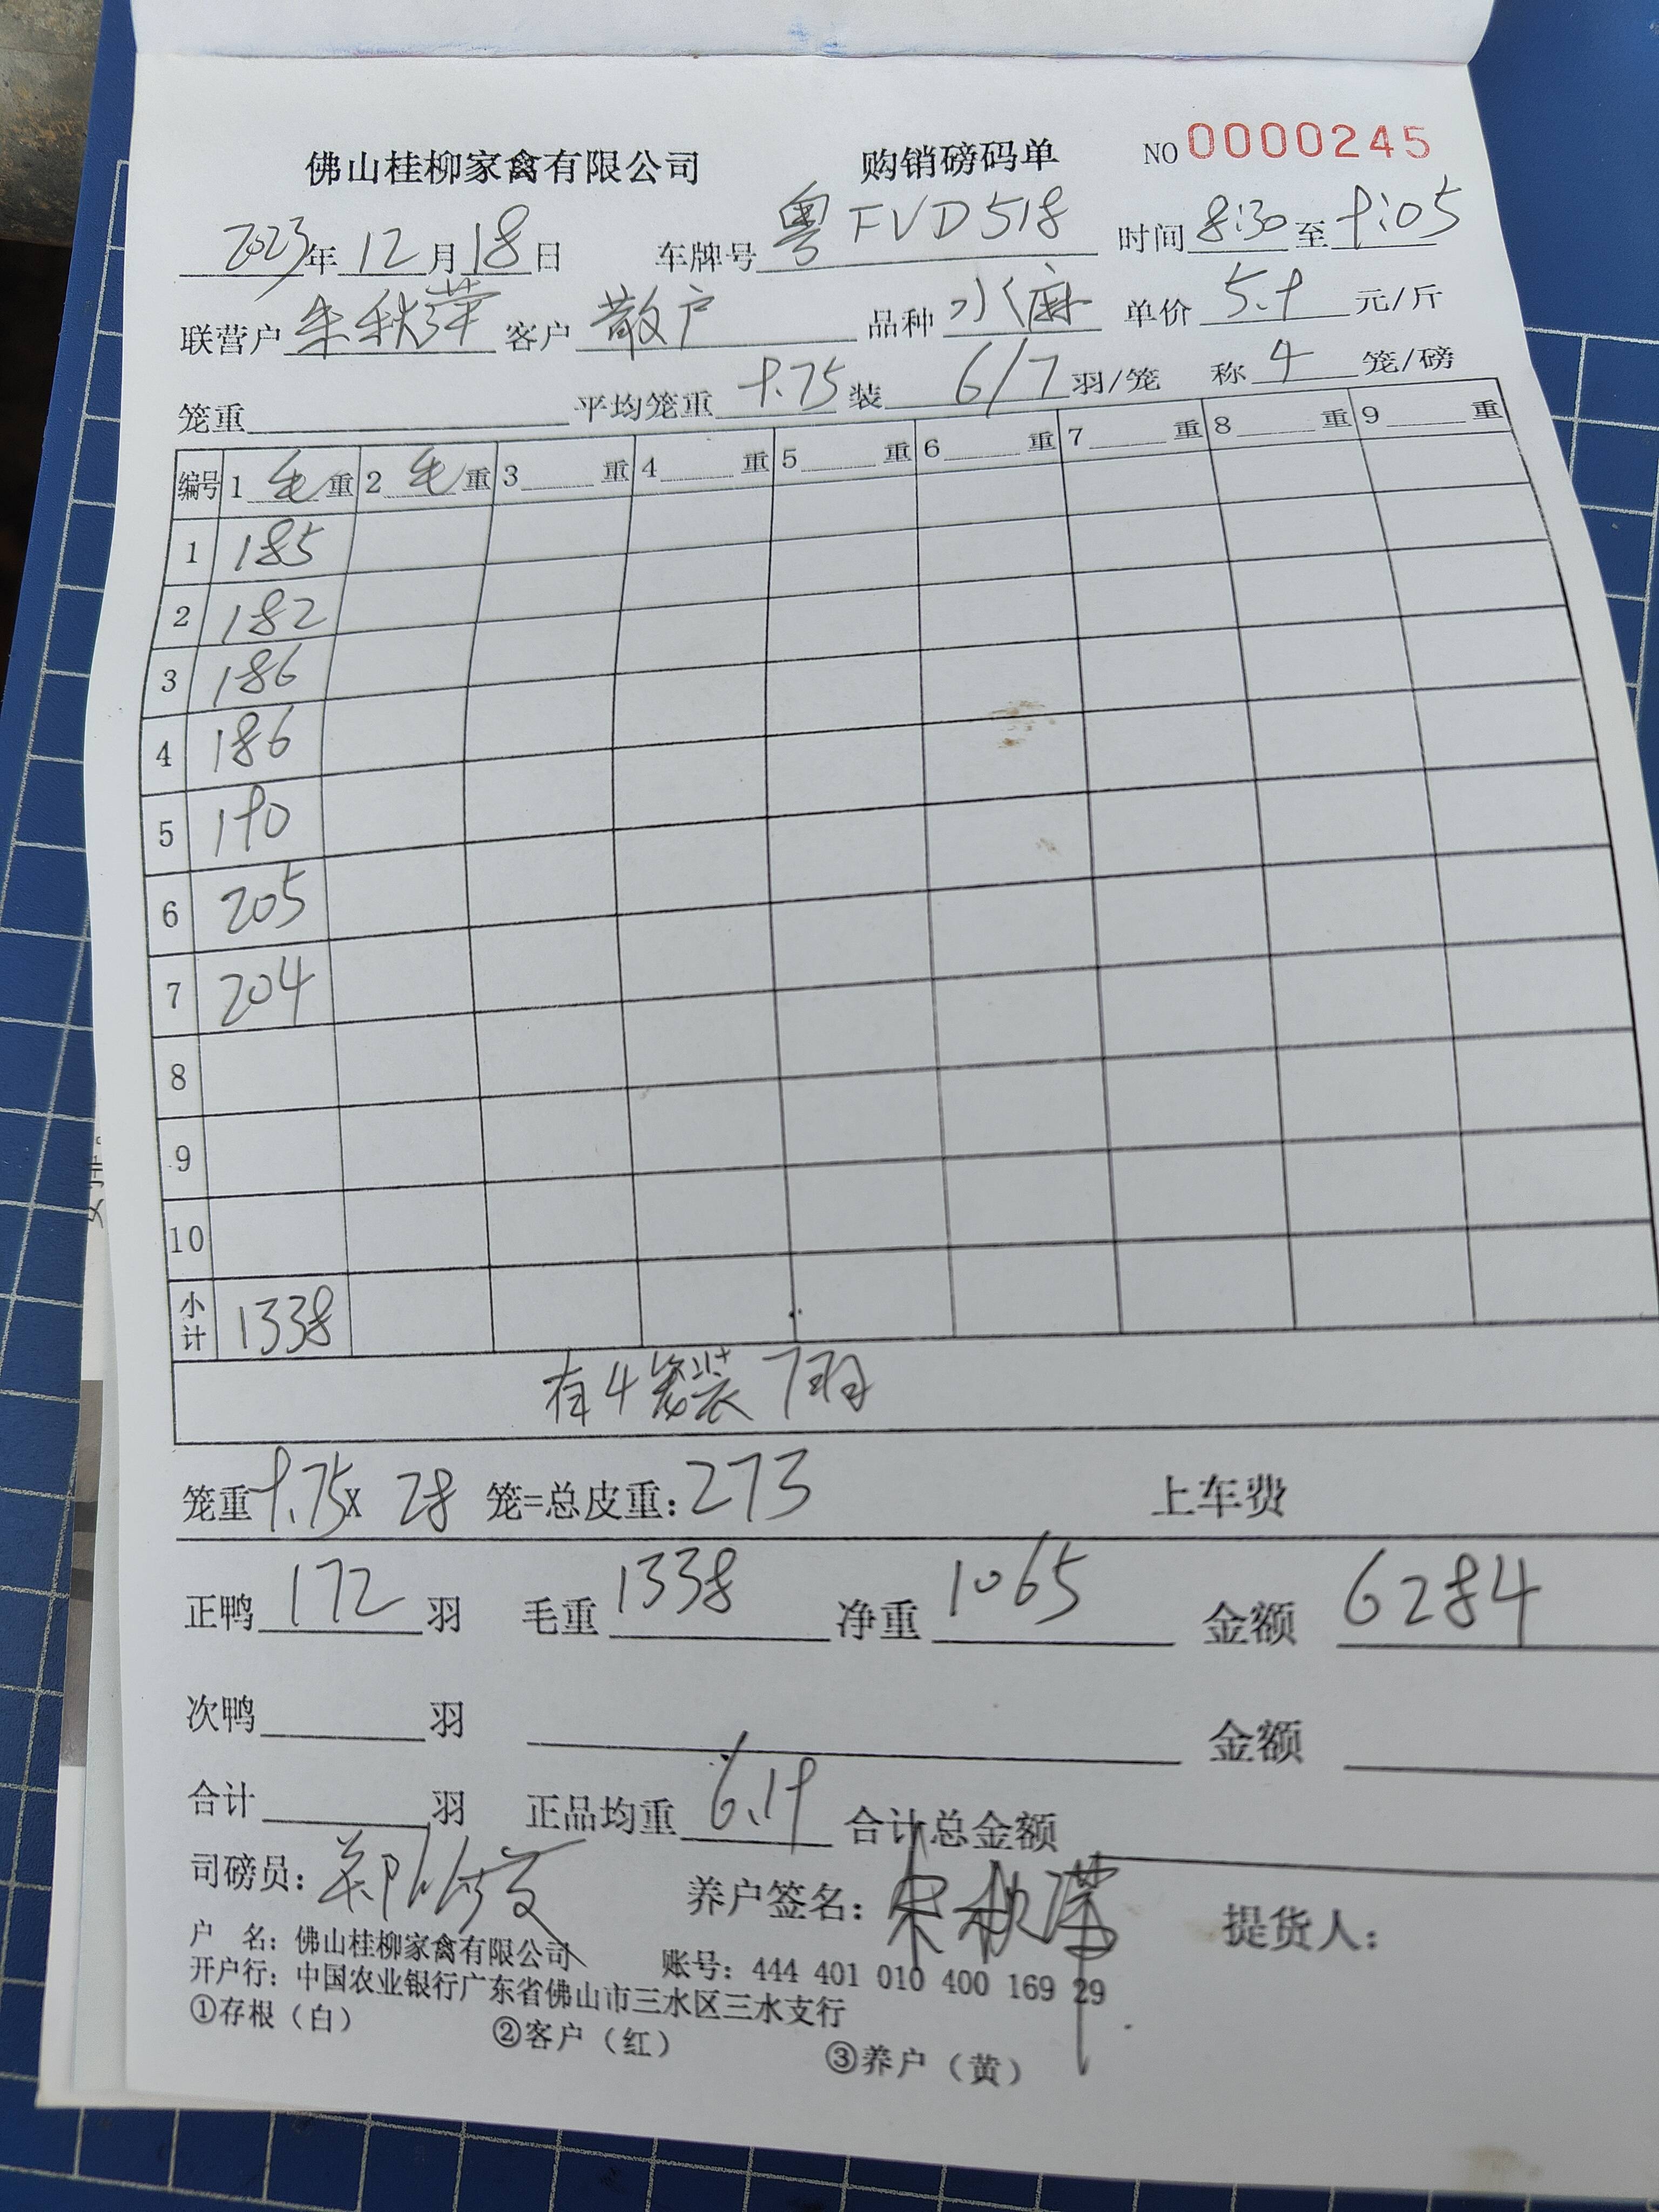 佛山桂柳家禽有限公司 购销磅码单 NO 0000245
2023年12月18日 车牌号 粤FVD518 时间 8:30 至 9:05
联营户 朱秋萍 客户 散户 品种 水麻 单价 5.9 元/斤
笼重 平均笼重 9.75 装 6/7 羽/笼 称 4 笼/磅
编号 1 毛 重 2 毛 重 3 重 4 重 5 重 6 重 7 重 8 重 9 重
1 185
2 182
3 186
4 186
5 190
6 205
7 204
8
9
10
小计 1338
有4笼装7羽
笼重 9.75 x 28 笼=总皮重: 273 上车费
正鸭 172 羽 毛重 1338 净重 1065 金额 6284
次鸭 羽 金额
合计 羽 正品均重 6.19 合计总金额
司磅员: 养户签名: 提货人:
户 名: 佛山桂柳家禽有限公司 账号: 444 401 010 400 169 29
开户行: 中国农业银行广东省佛山市三水区三水支行
①存根(白) ②客户(红) ③养户(黄)